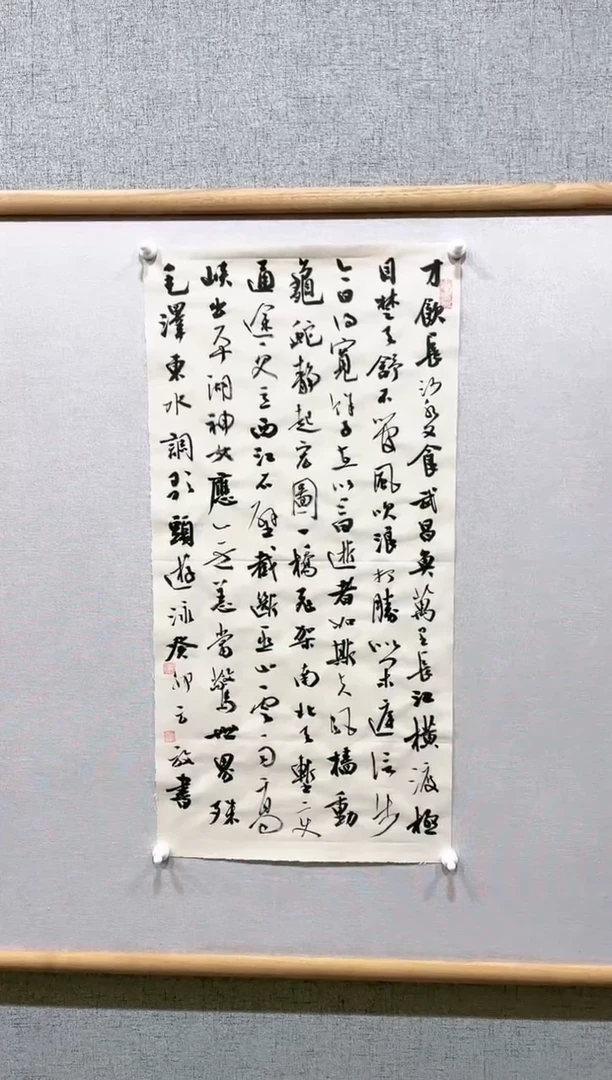 才飲長沙水又食武昌魚萬里長江橫渡極
目楚天舒不管風吹浪打勝似閑庭信步
今日得寬餘子在川上曰逝者如斯夫風檣動
龜蛇靜起宏圖一橋飛架南北天塹變
通途更立西江石壁截斷巫山雲雨高
峽出平湖神女應無恙當驚世界殊
毛澤東水調歌頭遊泳癸卯書